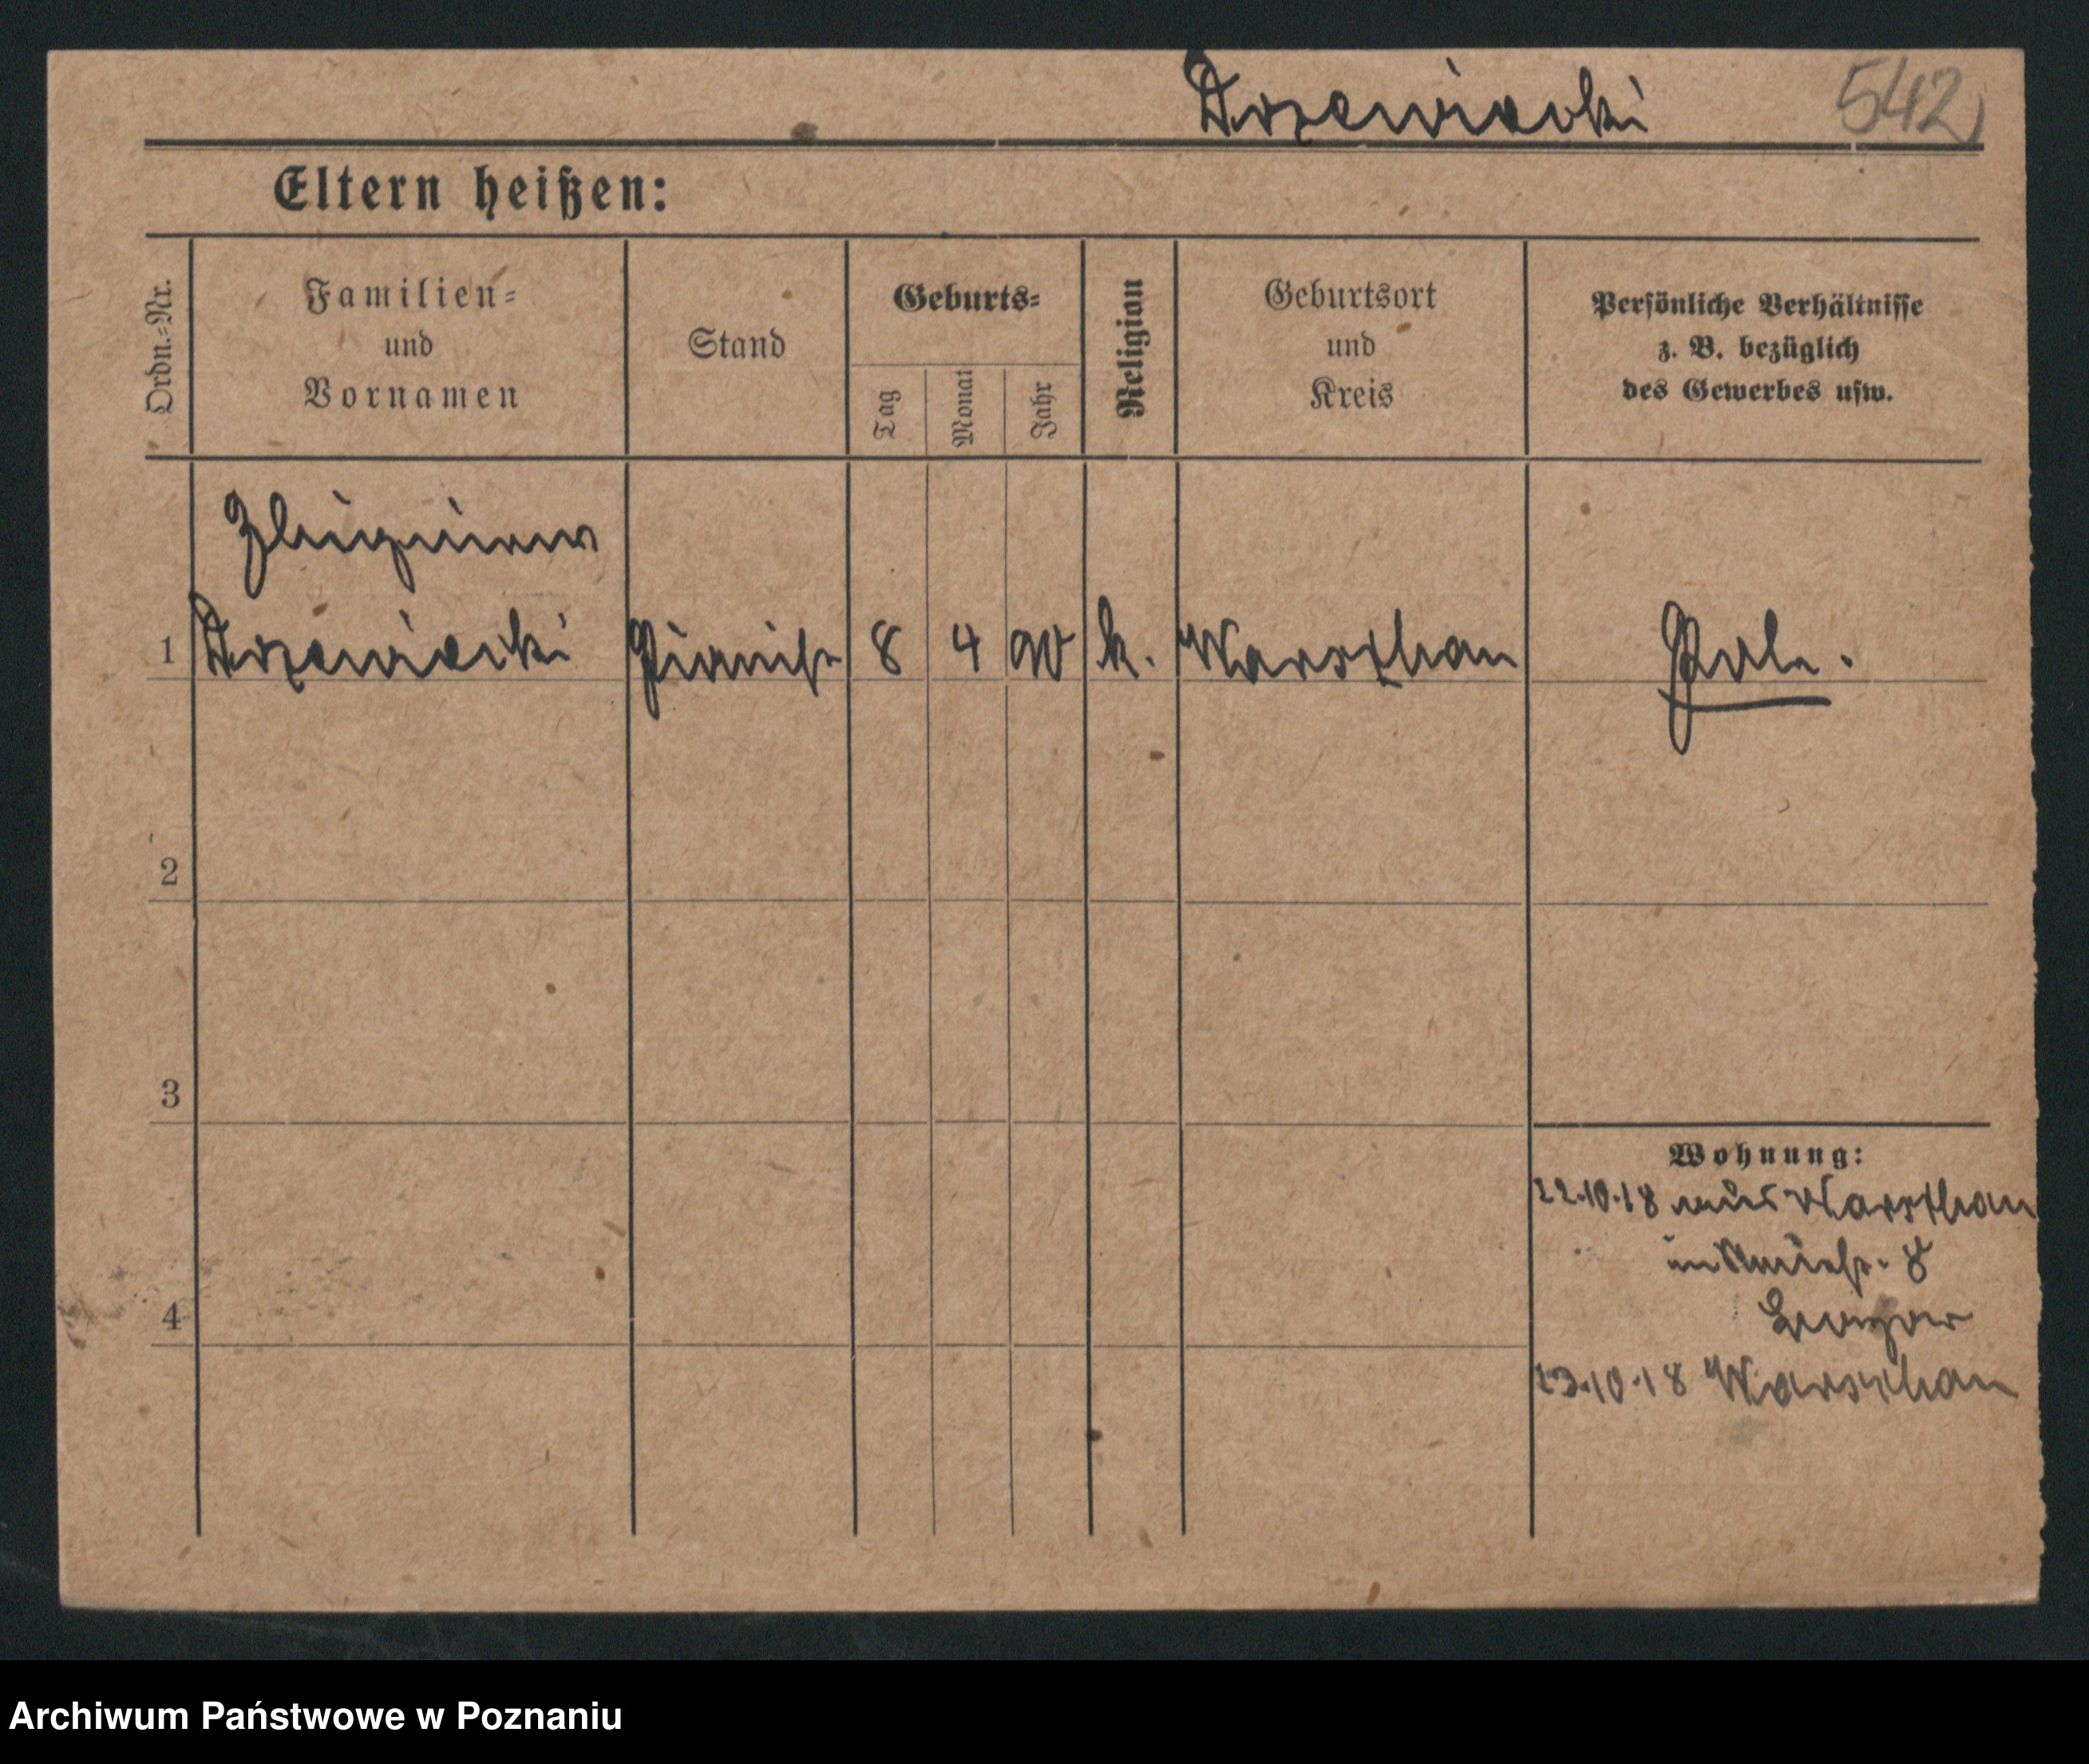 Drzewiecki 542
Eltern heißen:
Ordn.=Nr.
Familien=
und
Vornamen
Stand
Geburts=
Tag
Monat
Jahr
Religion
Geburtsort
und
Kreis
Persönliche Verhältnisse
z. B. bezüglich
des Gewerbes usw.
Zbigniew
1 Drzewiecki Pianist 8 4 90 k. Warschau Pole.
2
3
4
Wohnung:
22.10.18 aus Warschau
in 8
23.10.18 Warschau
Archiwum Państwowe w Poznaniu